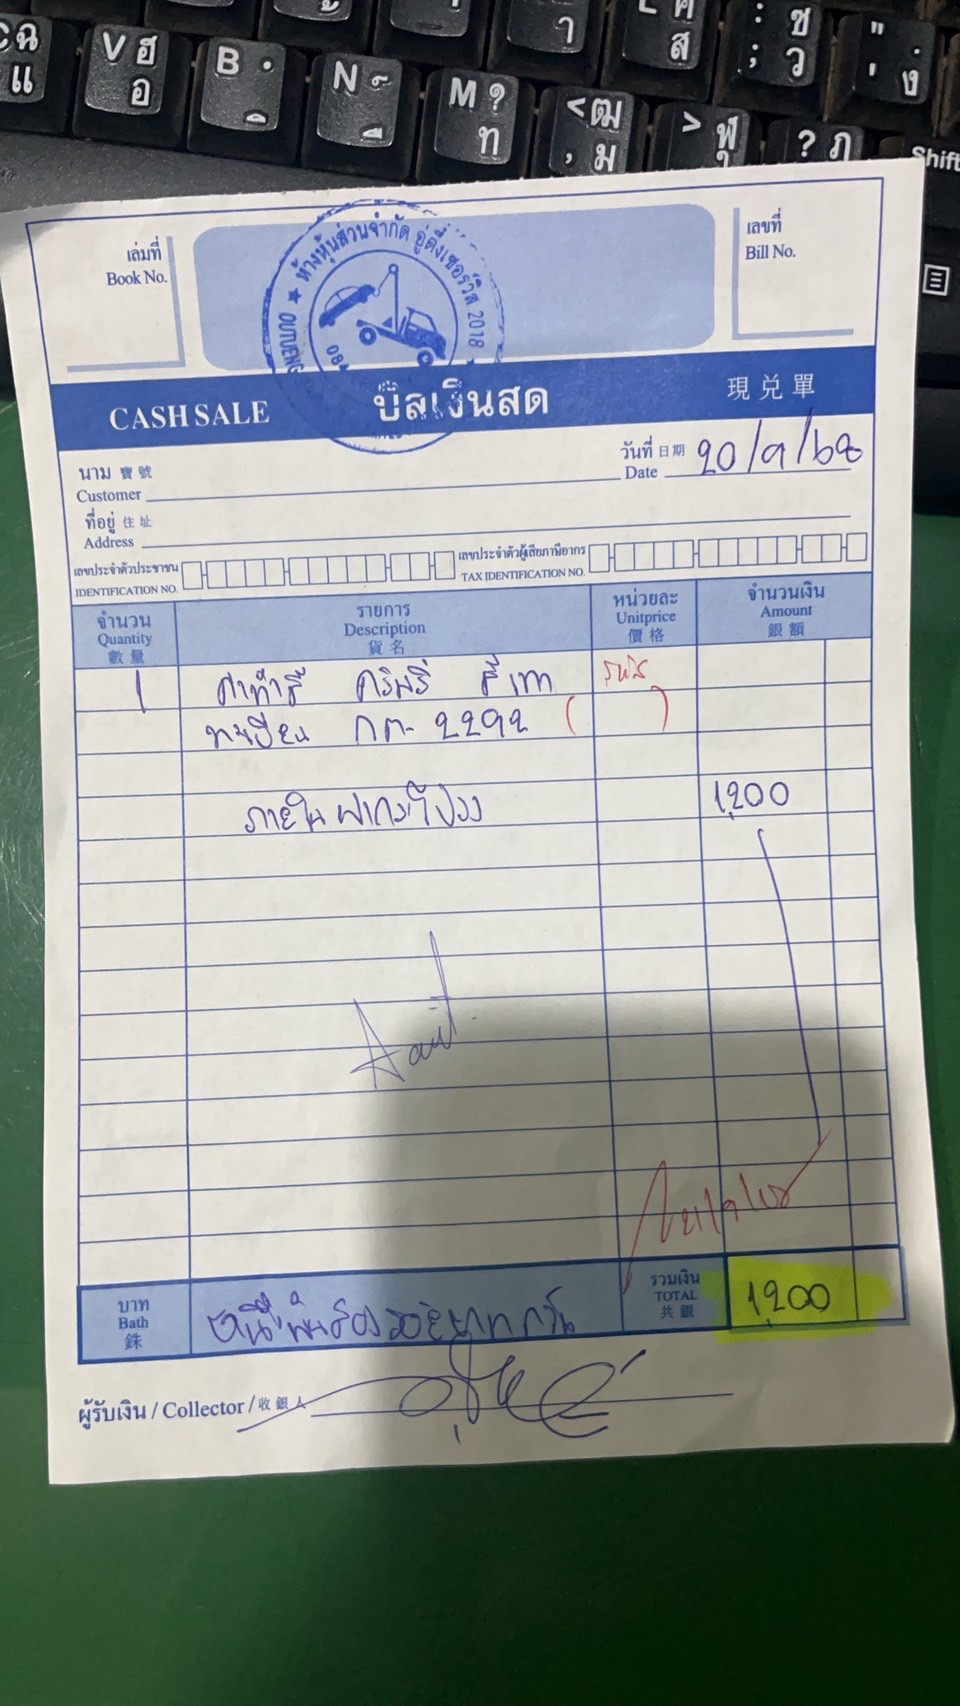 ฉ
แ
V ฮ
อ
B
N
M ?
ท
< ฒ
, ม
> ฬ
? ฦ
Shift
า
ศ
ส
: ซ
; ว
" .
' ง
ห้างหุ้นส่วนจำกัด อู่ตึ๋งเซอร์วิส 2018
เล่มที่
Book No.
เลขที่
Bill No.
CASH SALE บิลเงินสด 現兌單
นาม 寶號
Customer
วันที่ 日期
Date 20/9/68
ที่อยู่ 住址
Address
เลขประจำตัวประชาชน
IDENTIFICATION NO.
เลขประจำตัวผู้เสียภาษีอากร
TAX IDENTIFICATION NO.
จำนวน
Quantity
數量
รายการ
Description
貨名
หน่วยละ
Unitprice
價格
จำนวนเงิน
Amount
銀額
1 ค่าทำสี สีเทา รหัส
ทะเบียน กต-2292 ( )
ภายในฝากระโปรง 1,200
บาท
Bath
銖
หนึ่งพันสองร้อยบาทถ้วน
รวมเงิน
TOTAL
共銀
1,200
ผู้รับเงิน / Collector / 收銀人